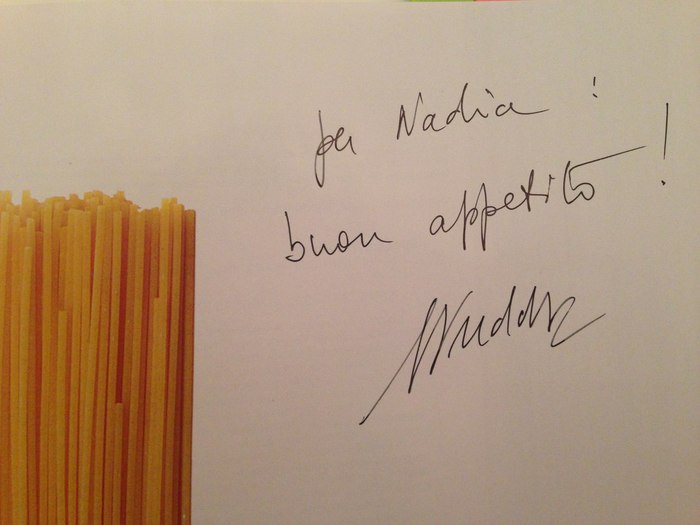 per Nadia :
buon appetito !